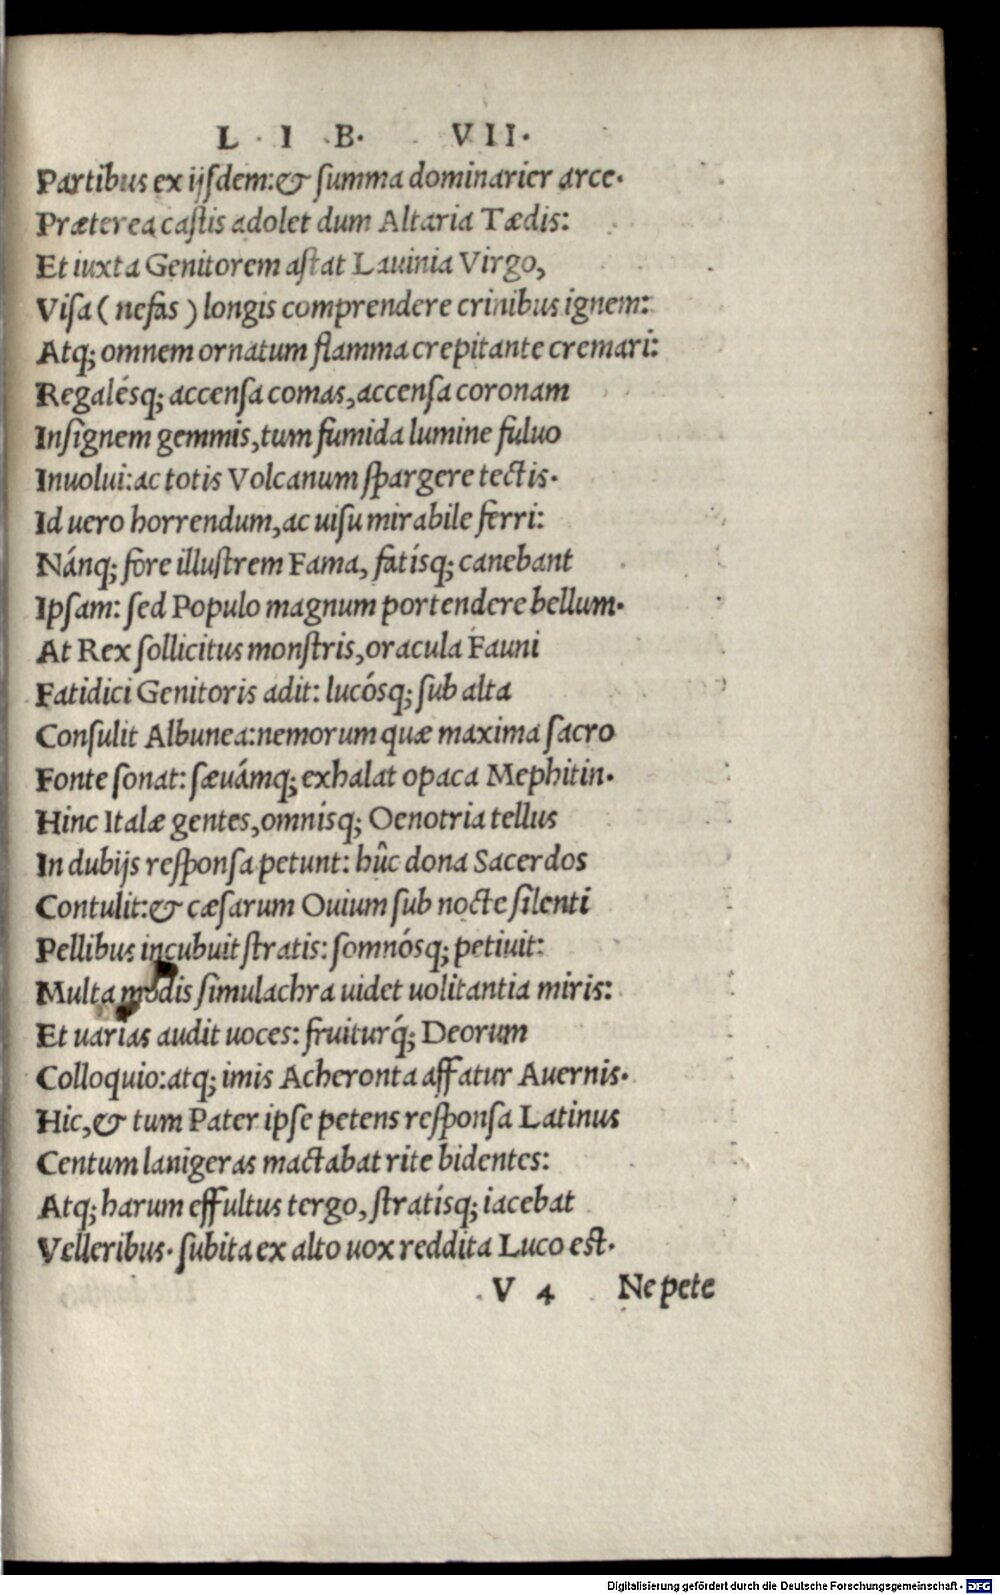 L I B. VII.
Partibus ex ijſdem:& ſumma dominarier arce.
Præterea caſtis adolet dum Altaria Tædis:
Et iuxta Genitorem aſtat Lauinia Virgo,
Viſa (nefas) longis comprendere crinibus ignem:
Atq; omnem ornatum flamma crepitante cremari:
Regalésq; accenſa comas, accenſa coronam
Inſignem gemmis, tum fumida lumine fuluo
Inuolui: ac totis Volcanum ſpargere tectis.
Id uero horrendum, ac uiſu mirabile ferri:
Nánq; fore illuſtrem Fama, fatísq; canebant
Ipſam: ſed Populo magnum portendere bellum.
At Rex ſollicitus monſtris, oracula Fauni
Fatidici Genitoris adit: lucósq; ſub alta
Conſulit Albunea: nemorum quæ maxima ſacro
Fonte ſonat: ſæuámq; exhalat opaca Mephitin.
Hinc Italæ gentes, omnisq; Oenotria tellus
In dubijs reſponſa petunt: hûc dona Sacerdos
Contulit:& cæſarum Ouium ſub nocte ſilenti
Pellibus incubuit ſtratis: ſomnósq; petiuit:
Multa modis ſimulachra uidet uolitantia miris:
Et uarias audit uoces: fruiturq́; Deorum
Colloquio: atq; imis Acheronta affatur Auernis.
Hic,& tum Pater ipſe petens reſponſa Latinus
Centum lanigeras mactabat rite bidentes:
Atq; harum effultus tergo, ſtratísq; iacebat
Velleribus. ſubita ex alto uox reddita Luco eſt.
V 4 Ne pete
Digitalisierung gefördert durch die Deutsche Forschungsgemeinschaft - DFG